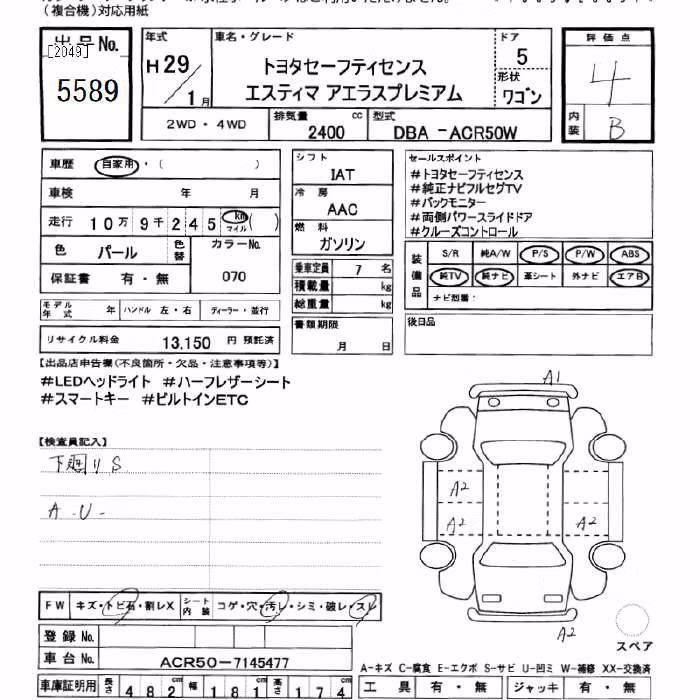 （複合機）対応用紙
出品No.
[2049]
5589
年式
H29／1月
車名・グレード
トヨタセーフティセンス
エスティマ アエラスプレミアム
ドア
5
形状
ワゴン
評価点
4
内装
B
2WD・4WD
排気量
2400
cc
型式
DBA-ACR50W
車歴
自家用・（　　）
車検
年　月
走行
10万9千245 km マイル（　）
色
パール
色替
カラーNo.
070
保証書
有・無
モデル年式
年
ハンドル 左・右
ディーラー・並行
リサイクル料金
13,150 円 預託済
シフト
IAT
冷房
AAC
燃料
ガソリン
乗車定員
7 名
積載量
kg
総重量
kg
書類期限
月　日
セールスポイント
#トヨタセーフティセンス
#純正ナビフルセグTV
#バックモニター
#両側パワースライドドア
#クルーズコントロール
装備品
S/R 純A/W P/S P/W ABS
純TV 純ナビ 革シート 外ナビ エアB
ナビ型番：
後日品
【出品店申告欄(不良箇所・欠品・注意事項等)】
#LEDヘッドライト #ハーフレザーシート
#スマートキー #ビルトインETC
【検査員記入】
下廻りS
A-U-
A1
A2
A2
A2
A2
スペア
FW
キズ・トビ石・割レX
シート内装
コゲ・穴・汚レ・シミ・破レ・スレ
登録No.
車台No.
ACR50-7145477
車庫証明用
長さ 482cm 幅 181cm 高さ 174cm
A-キズ C-腐食 E-エクボ S-サビ U-凹ミ W-補修 XX-交換済
工具 有・無 ジャッキ 有・無